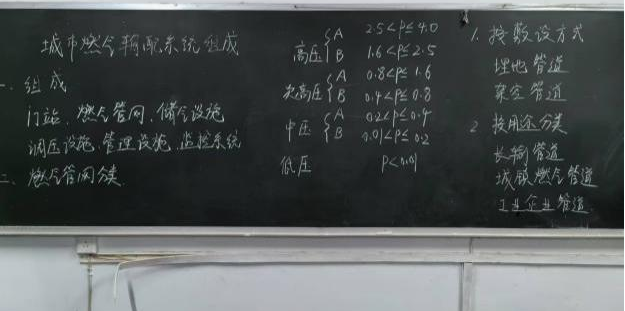 城市燃气输配系统组成
一、组成
门站、燃气管网、储气设施
调压设施、管理设施、监控系统
二、燃气管网分类
高压 A 2.5<P≤4.0
B 1.6<P≤2.5
次高压 A 0.8<P≤1.6
B 0.4<P≤0.8
中压 A 0.2<P≤0.4
B 0.01<P≤0.2
低压 P<0.01
1. 按敷设方式
埋地管道
架空管道
2 按用途分类
长输管道
城镇燃气管道
工业企业管道